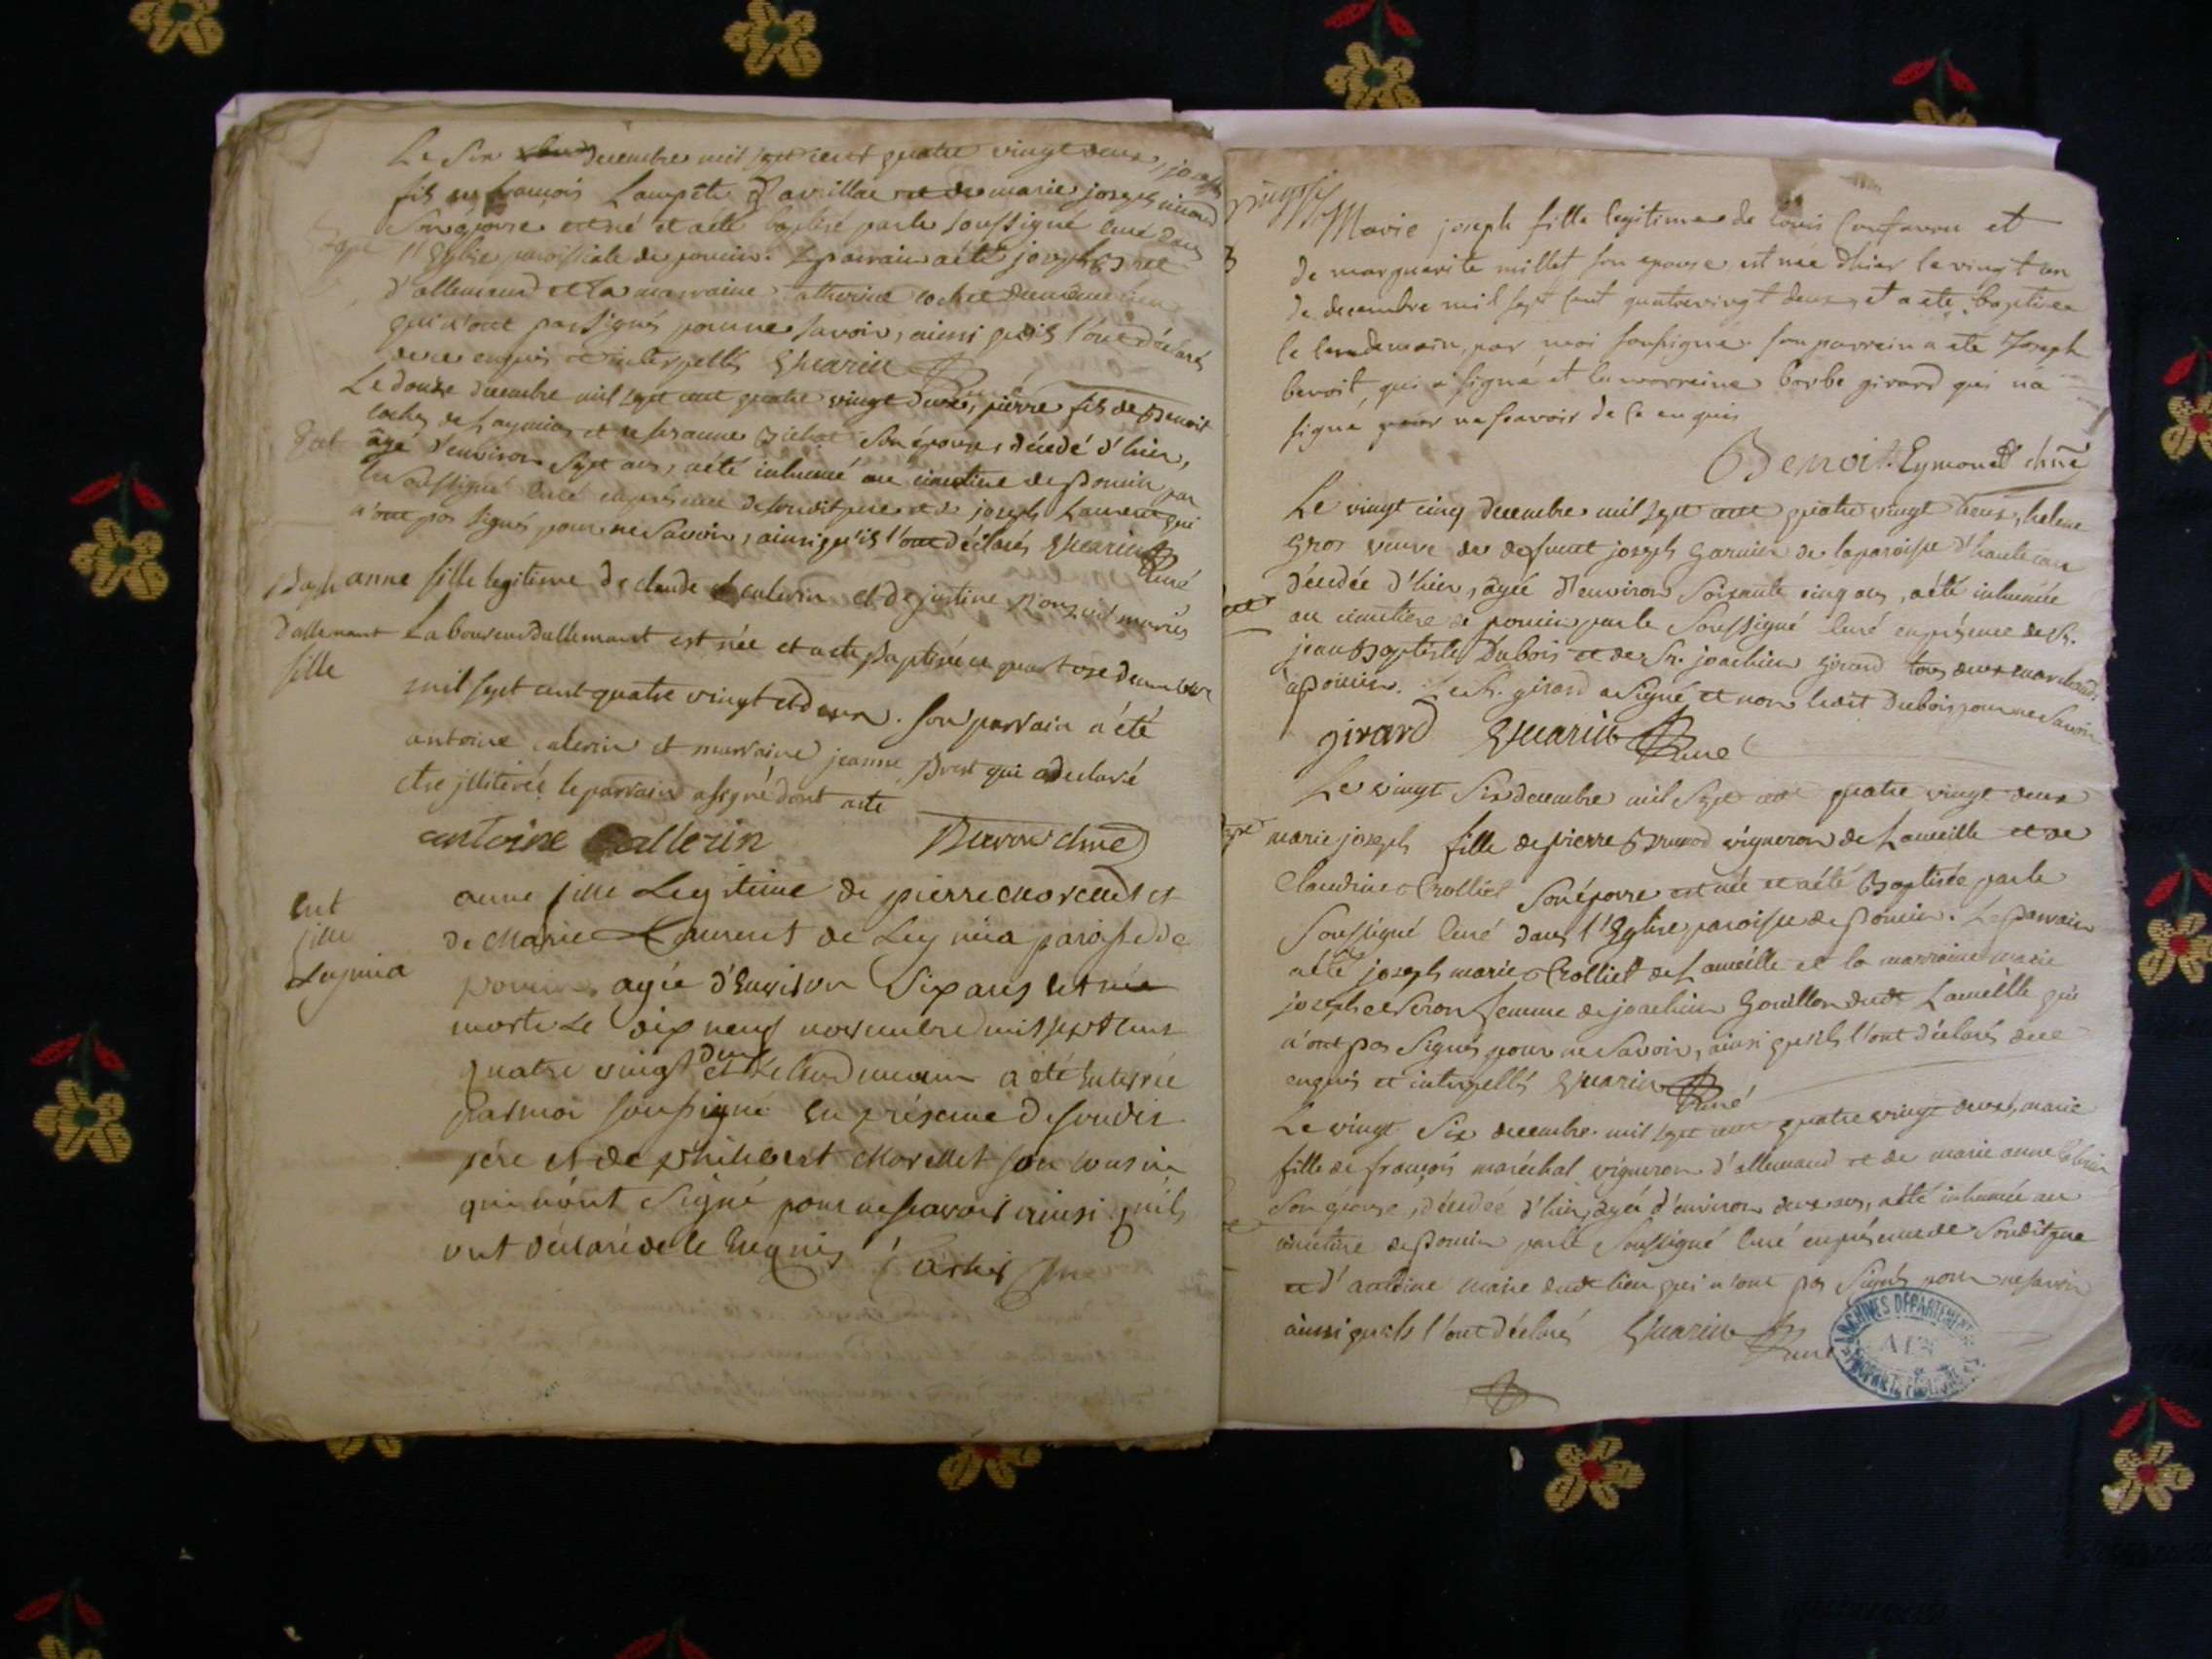 Le Six decembre mil sept cent quatre vingt deux, joseph
fils de francois Lampete davrillac et de marie joseph
Son épouse est né et a été baptisé par le soussigné curé dans
Bapt l'Eglise paroissiale de poncin. Le parrain a été joseph
d'allemend et la marraine Catherine cochet du même lieu
qui n'ont pas Signés pour ne savoir, ainsi qu'ils l'ont déclarés
de ce enquis et interpellés Guarin Curé
Le douze decembre mil sept cent quatre vingt deux, pierre fils de Benoit
cochet de Laymia, et de Susanne Bichat Son épouse, décédé d'hier,
âgé d'environ Sept ans, a été inhumé au cimetiere de poncin par
le soussigné Curé en présence de sondit pere et de joseph Laurent qui
n'ont pas signés pour ne Savoir, ainsi qu'ils l'ont déclarés Guarin Curé
Bapt anne fille legitime de claude caleurin et de justine ponsard mariés
Dallemant Laboureur dallemant est née et a été Baptisée ce quatorze decembre
fille
mil sept cent quatre vingt et deux. Son parrain a été
antoine calerin et marraine jeanne prost qui a declaré
être jlliterée le parrain a signé dont acte
antoine Callerin
Ent anne fille Legitime de pierre Morellet et
fille de Marie Laurent de Leymia paroisse de
Leymia
poncin, agée d'Environ Six ans est
morte Le dix neuf novembre mil sept cent
quatre vingt deux et Le lendemain a été Enterrée
par moi soussigné En présence de son dit
père et de philibert Morellet son cousin
qui n'ont Signé pour ne scavoir ainsi qu'ils
ont déclaré de ce Enquis
Marie joseph fille legitime de Louis Confavreu et
de marguerite millet son epouse est née d'hier le vingt un
de decembre mil sept cent quatrevingt deux, et a ete baptisée
le lendemain, par moi soussigné. son parrein a ete Joseph
benoit, qui a signé et la marreine barbe girard qui n'a
signé pour ne scavoir de ce enquis
Benoit. Eymonet
Le vingt cinq decembre mil sept cent quatre vingt deux, helene
Gros veuve de defunt joseph Garnier de la paroisse d'hautecour
décédée d'hier, agée d'environ Soixante cinq ans, a été inhumée
au cimetiere de poncin par le Soussigné Curé en présence de Sr.
jean Baptiste Dubois et de Sr. joachim Girard tous deux marchands
à poncin. Le Sr. girard a Signé et non ledit Dubois pour ne Savoir
girard Guarin Curé
Le vingt Six decembre mil Sept cent quatre vingt deux
marie joseph fille de pierre Brunod vigneron de Lameille et de
Claudine Rolliet Son épouse est née et a été Baptisée par le
Soussigné Curé dans l'Eglise paroisse de poncin. Le parrain
a été joseph marie Rolliet de Lameille et la marraine marie
joseph femme de joachim Gouillon dudt Lameille qui
n'ont pas Signés pour ne Savoir, ainsi qu'ils l'ont déclarés de ce
enquis et interpellés Guarin Curé
Le vingt Six decembre mil sept cent quatre vingt deux, marie
fille de françois maréchal vigneron d'allemand et de marie anne
Son épouse, décédée d'hier, agée d'environ deux ans, a été inhumée au
cimetiere de poncin par le Soussigné Curé en présence de Sondit pere
et d'antoine marie dudt lieu qui n'ont pas Signés pour ne savoir
ainsi qu'ils l'ont déclarés Guarin Curé
ARCHIVES DEPARTEMENTALES
AIN